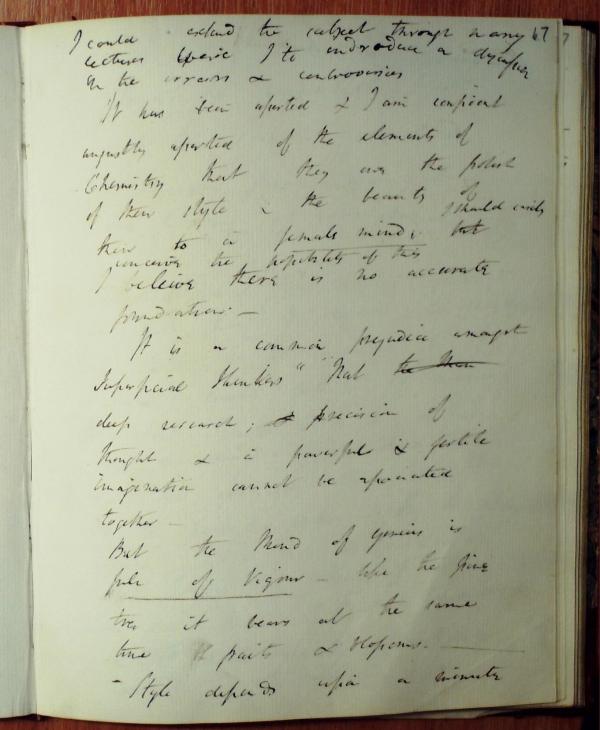 I could extend the subject through many 67
lectures were I to introduce a
on the errors & controversies
It has been asserted & I am confident
unjustly asserted of the elements of
Chemistry that they owe the polish
of their style & the beauty of
I should easily
them to a female mind; but
conceive the possibility of this
I beleive there is no accurate
foundation. —
It is a common prejudice amongst
superficial thinkers "that
deep research; precision of
thought & a powerful & fertile
imagination cannot be associated
together —
But the Mind of genius is
full of Vigour — like the
tree it bears at the same
time fruits & blossoms. —
- Style depends upon a minute